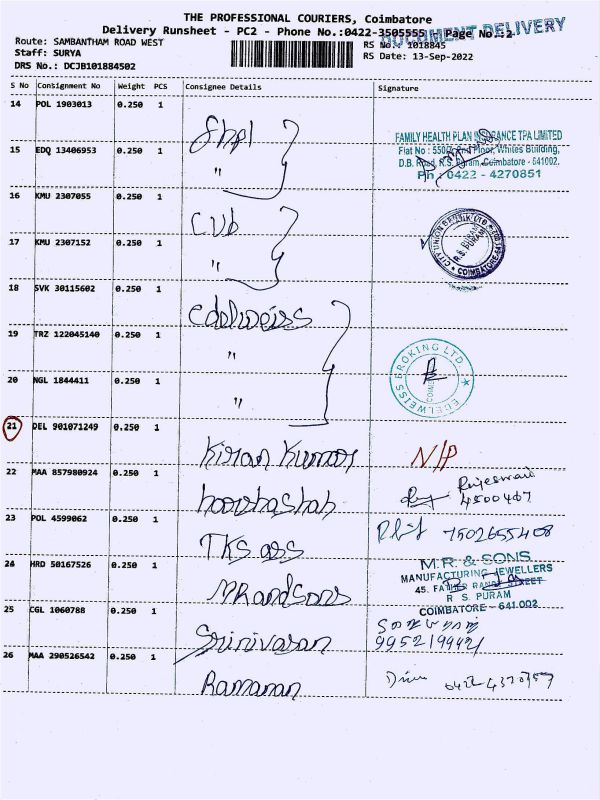 THE PROFESSIONAL COURIERS, Coimbatore
DOCUMENT DELIVERY
Delivery Runsheet - PC2 - Phone No.:0422-3505555 - Page No.:2
Route: SAMBANTHAM ROAD WEST
RS No.: 1018845
Staff: SURYA
RS Date: 13-Sep-2022
DRS No.: DCJB101884502
S No Consignment No Weight PCS Consignee Details Signature
14 POL 1903013 0.250 1 fhpl
FAMILY HEALTH PLAN INSURANCE TPA LIMITED
Flat No : 550/2, 2nd Floor, Whites Building,
D.B. Road, R.S. Puram, Coimbatore - 641002.
Ph : 0422 - 4270851
15 EDQ 13406953 0.250 1 "
16 KMU 2307055 0.250 1 CUB
CITY UNION BANK LTD
R.S. PURAM
COIMBATORE
17 KMU 2307152 0.250 1 "
18 SVK 30115602 0.250 1 edelweiss
19 TRZ 122045140 0.250 1 "
EDELWEISS BROKING LTD
20 NGL 1844411 0.250 1 "
21 DEL 901071249 0.250 1 Kiran Kumar N/P
22 MAA 857980924 0.250 1
4500467
23 POL 4599062 0.250 1 TKS ass 7502655408
24 HRD 50167526 0.250 1 MR and Sons
M.R. & SONS
MANUFACTURING JEWELLERS
45. FATHER RANDY STREET
R S. PURAM
COIMBATORE - 641.002
25 CGL 1060788 0.250 1 Srinivasan
9952199421
26 MAA 290526542 0.250 1 Ramanan